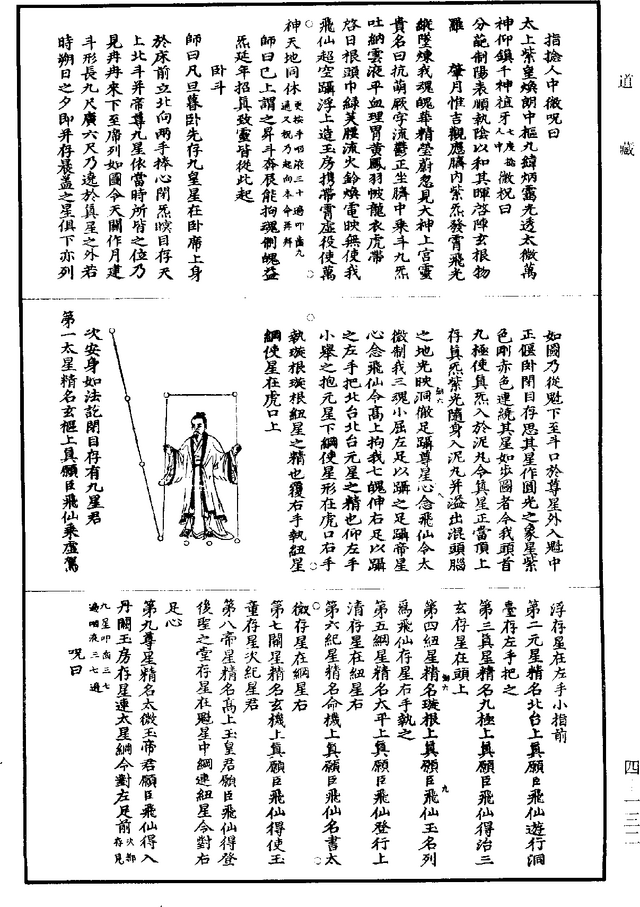 道藏
四—一三二
指捻人中微呪曰
太上紫皇煥朗中樞九緯炳靈光透太微萬
神仰鎮千神植牙七度捻人中微祝曰
分蓜制陽表順執陰以和其暉啓陣玄根物
羅肇月惟吉觀應臍内紫炁發霄飛光
縱墜煉我魂魄華精瑩蔚忽見大神上宮靈
貴名曰抗萌厥字流鬱正坐臍中乘斗九炁
吐納雲液平血理胃黄鳳羽帔龍衣虎帶
啓日根頭巾緑芙腰流火鈴煥電映無使我
飛仙超空躡浮上造玉房携帶霄虛役使萬
神天地同休更按手咽液三十過叩齒九通又祝乃起向本命再拜
師曰已上謂之昇斗奔辰能拘魂制魄益
炁延年招真致靈皆從此起
卧斗
師曰凡旦暮卧先存九皇星在卧席上身
於床前立北向兩手捧心閉炁暝目存天
上北斗并帝尊九星依當時所皆之位乃
見冉冉來下至席列如圖令天關作月建
斗形長九尺廣六尺乃遶於真星之外若
時朔日之夕即并存晨蓋之星俱下亦列
如圖乃從魁下至斗口於尊星外入魁中
正偃卧閉目存思其星作圓光之象星紫
色剛赤色連繞其星如步圖者令我頭首
九極使真炁入於泥丸令真星正當頂上
存真炁紫光隨身入泥丸并溢出混頭腦
之地光映洞徹足躡尊星心念飛仙令太
微制我三魂小屈左足以躡之足躡帝星
心念飛仙令高上拘我七魄伸右足以躡
之左手把北台北台元星之精也仰左手
小舉之抱元星下綱使星形在虎口右手
執璇根璇根紐星之精也覆右手執紐星
綱使星在虎口上
次安身如法訖閉目存有九星君
第一太星精名玄樞上真願臣飛仙乘虛駕
浮存星在左手小指前
第二元星精名北台上真願臣飛仙遊行洞
臺存左手把之
第三真星精名九極上真願臣飛仙得治三
玄存星在頭上
第四紐星精名璇根上真願臣飛仙玉名列
爲飛仙存星右手執之
第五綱星精名太平上真願臣飛仙登行上
清存星在紐星右
第六紀星精名命機上真願臣飛仙名書太
微存星在綱星右
第七關星精名玄機上真願臣飛仙得使玉
童存星次紀星君
第八帝星精名高上玉皇君願臣飛仙得登
後聖之堂存星在魁星中綱連紐星令對右
足心
第九尊星精名太微玉帝君願臣飛仙得入
丹闕玉房存星連太星綱令對左足前次都存見
九星叩齒三七過咽液三七過
呪曰